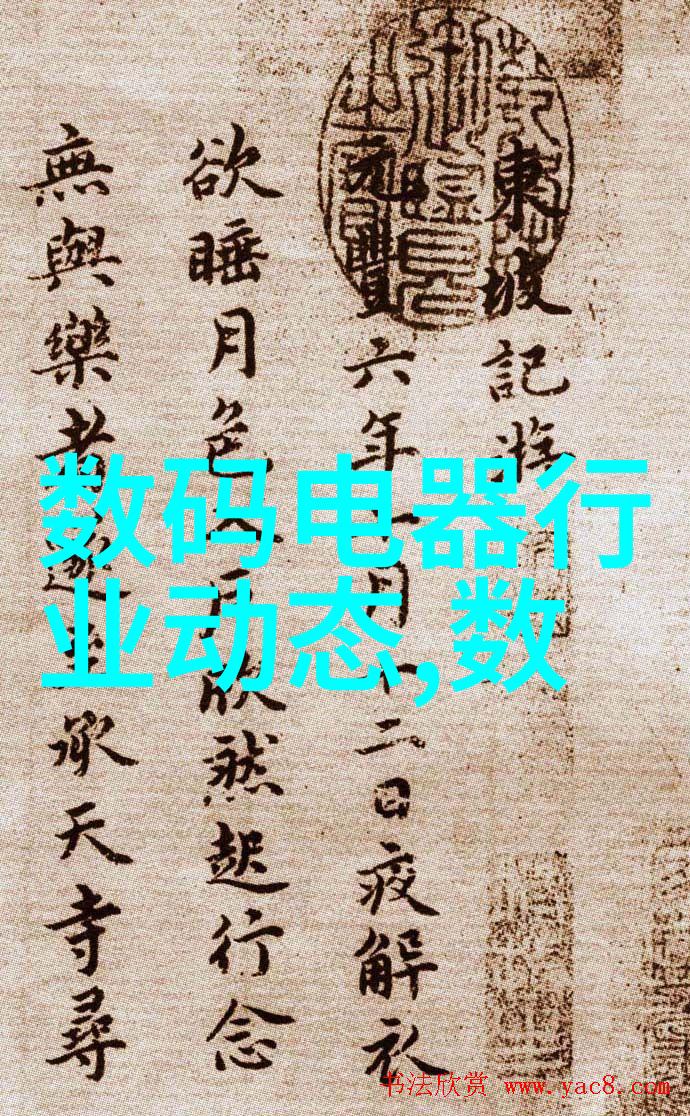 東坡記游
元豐六年十月十二日夜解衣
欲睡月色入戶欣然起行念
無與樂者遂至承天寺尋
数码电器行
业动态,数
书法欣赏 www.yac8.com